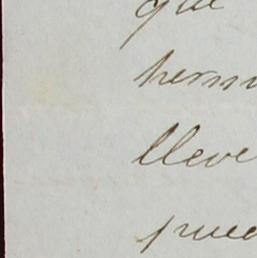 que
herm
lleve
pued